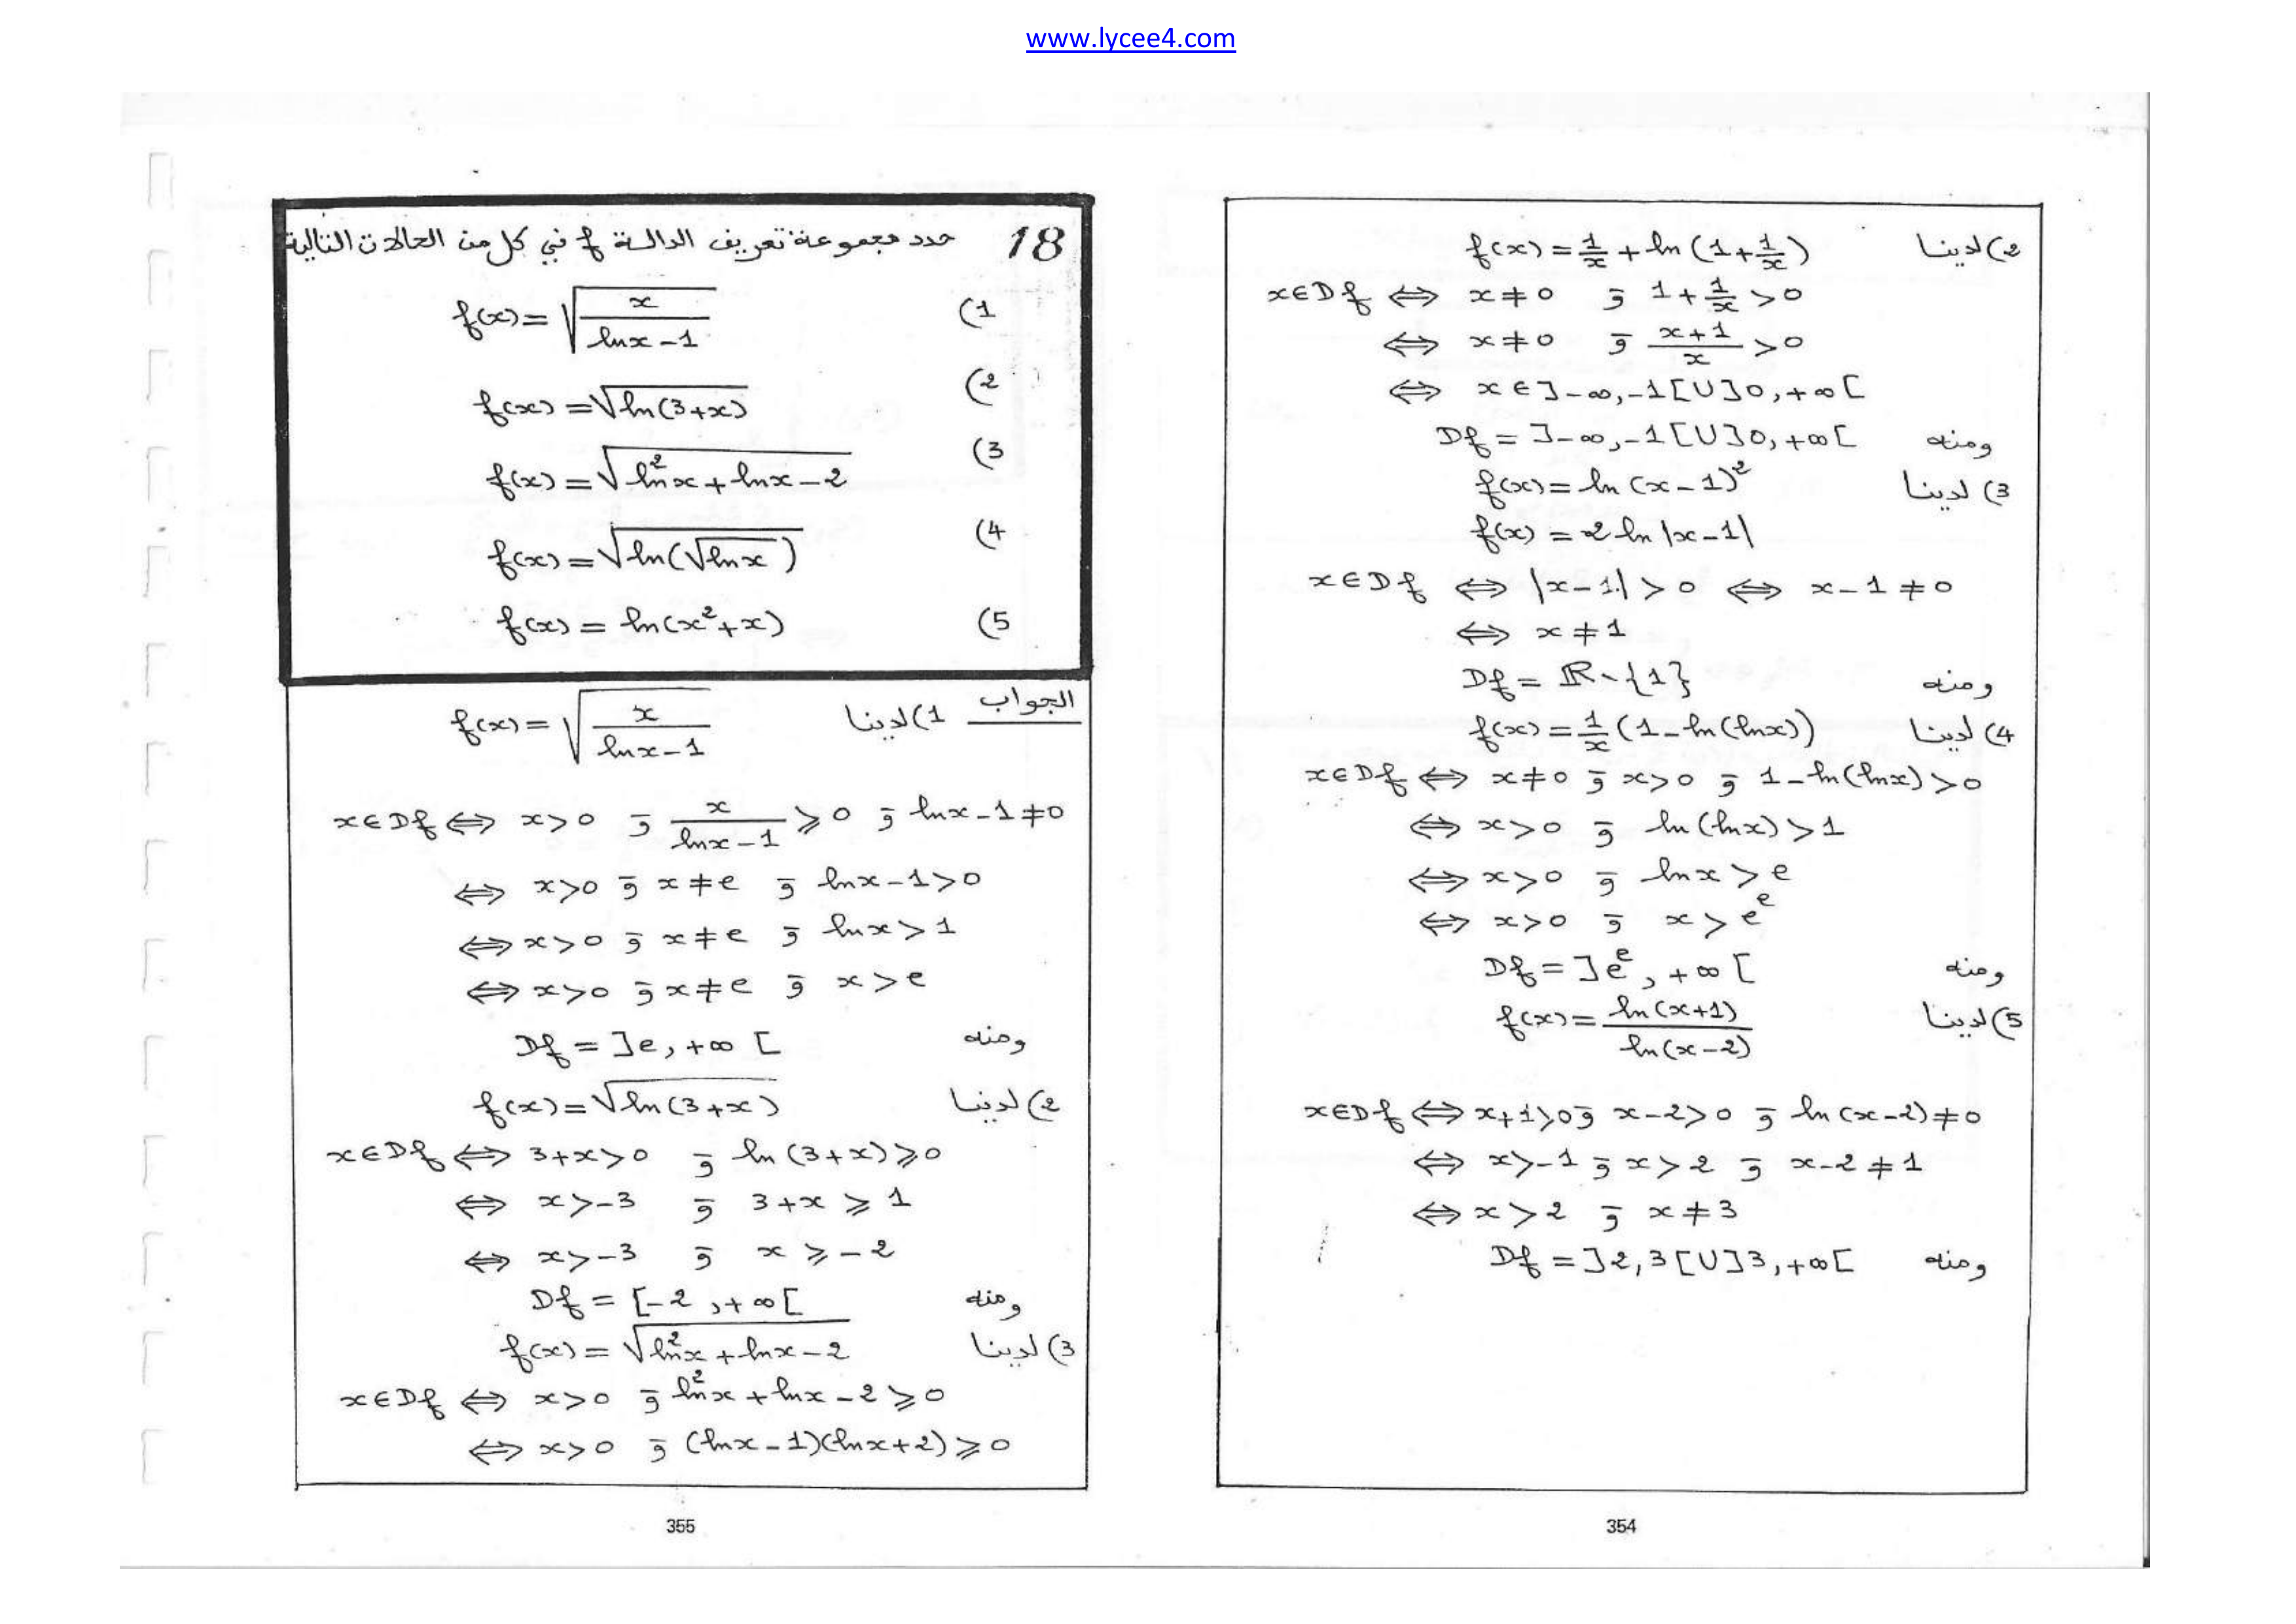 www.lycee4.com
2) لدينا f(x) = 1/x + ln(1 + 1/x)
x∈Df ⟺ x ≠ 0 و 1 + 1/x > 0
⟺ x ≠ 0 و (x+1)/x > 0
⟺ x ∈ ]-∞, -1[ U ]0, +∞[
ومنه Df = ]-∞, -1[ U ]0, +∞[
3) لدينا f(x) = ln(x-1)²
f(x) = 2 ln|x-1|
x∈Df ⟺ |x-1| > 0 ⟺ x-1 ≠ 0
⟺ x ≠ 1
ومنه Df = ℝ - {1}
4) لدينا f(x) = 1/x (1 - ln(lnx))
x∈Df ⟺ x≠0 و x>0 و 1-ln(lnx) > 0
⟺ x>0 و ln(lnx) > 1
⟺ x>0 و lnx > e
⟺ x>0 و x > e^e
ومنه Df = ]e^e, +∞[
5) لدينا f(x) = ln(x+1)/ln(x-2)
x∈Df ⟺ x+1>0 و x-2>0 و ln(x-2) ≠ 0
⟺ x>-1 و x>2 و x-2 ≠ 1
⟺ x>2 و x ≠ 3
ومنه Df = ]2, 3[ U ]3, +∞[
354
18 حدد مجموعة تعريف الدالة f في كل من الحالات التالية
1) f(x) = √(x/(lnx-1))
2) f(x) = √(ln(3+x))
3) f(x) = √(ln²x + lnx - 2)
4) f(x) = √(ln(√lnx))
5) f(x) = ln(x²+x)
الجواب 1) لدينا f(x) = √(x/(lnx-1))
x∈Df ⟺ x>0 و x/(lnx-1) ⩾ 0 و lnx-1 ≠ 0
⟺ x>0 و x≠e و lnx-1>0
⟺ x>0 و x≠e و lnx>1
⟺ x>0 و x≠e و x>e
ومنه Df = ]e, +∞[
2) لدينا f(x) = √(ln(3+x))
x∈Df ⟺ 3+x>0 و ln(3+x) ⩾ 0
⟺ x>-3 و 3+x ⩾ 1
⟺ x>-3 و x ⩾ -2
ومنه Df = [-2, +∞[
3) لدينا f(x) = √(ln²x + lnx - 2)
x∈Df ⟺ x>0 و ln²x + lnx - 2 ⩾ 0
⟺ x>0 و (lnx-1)(lnx+2) ⩾ 0
355